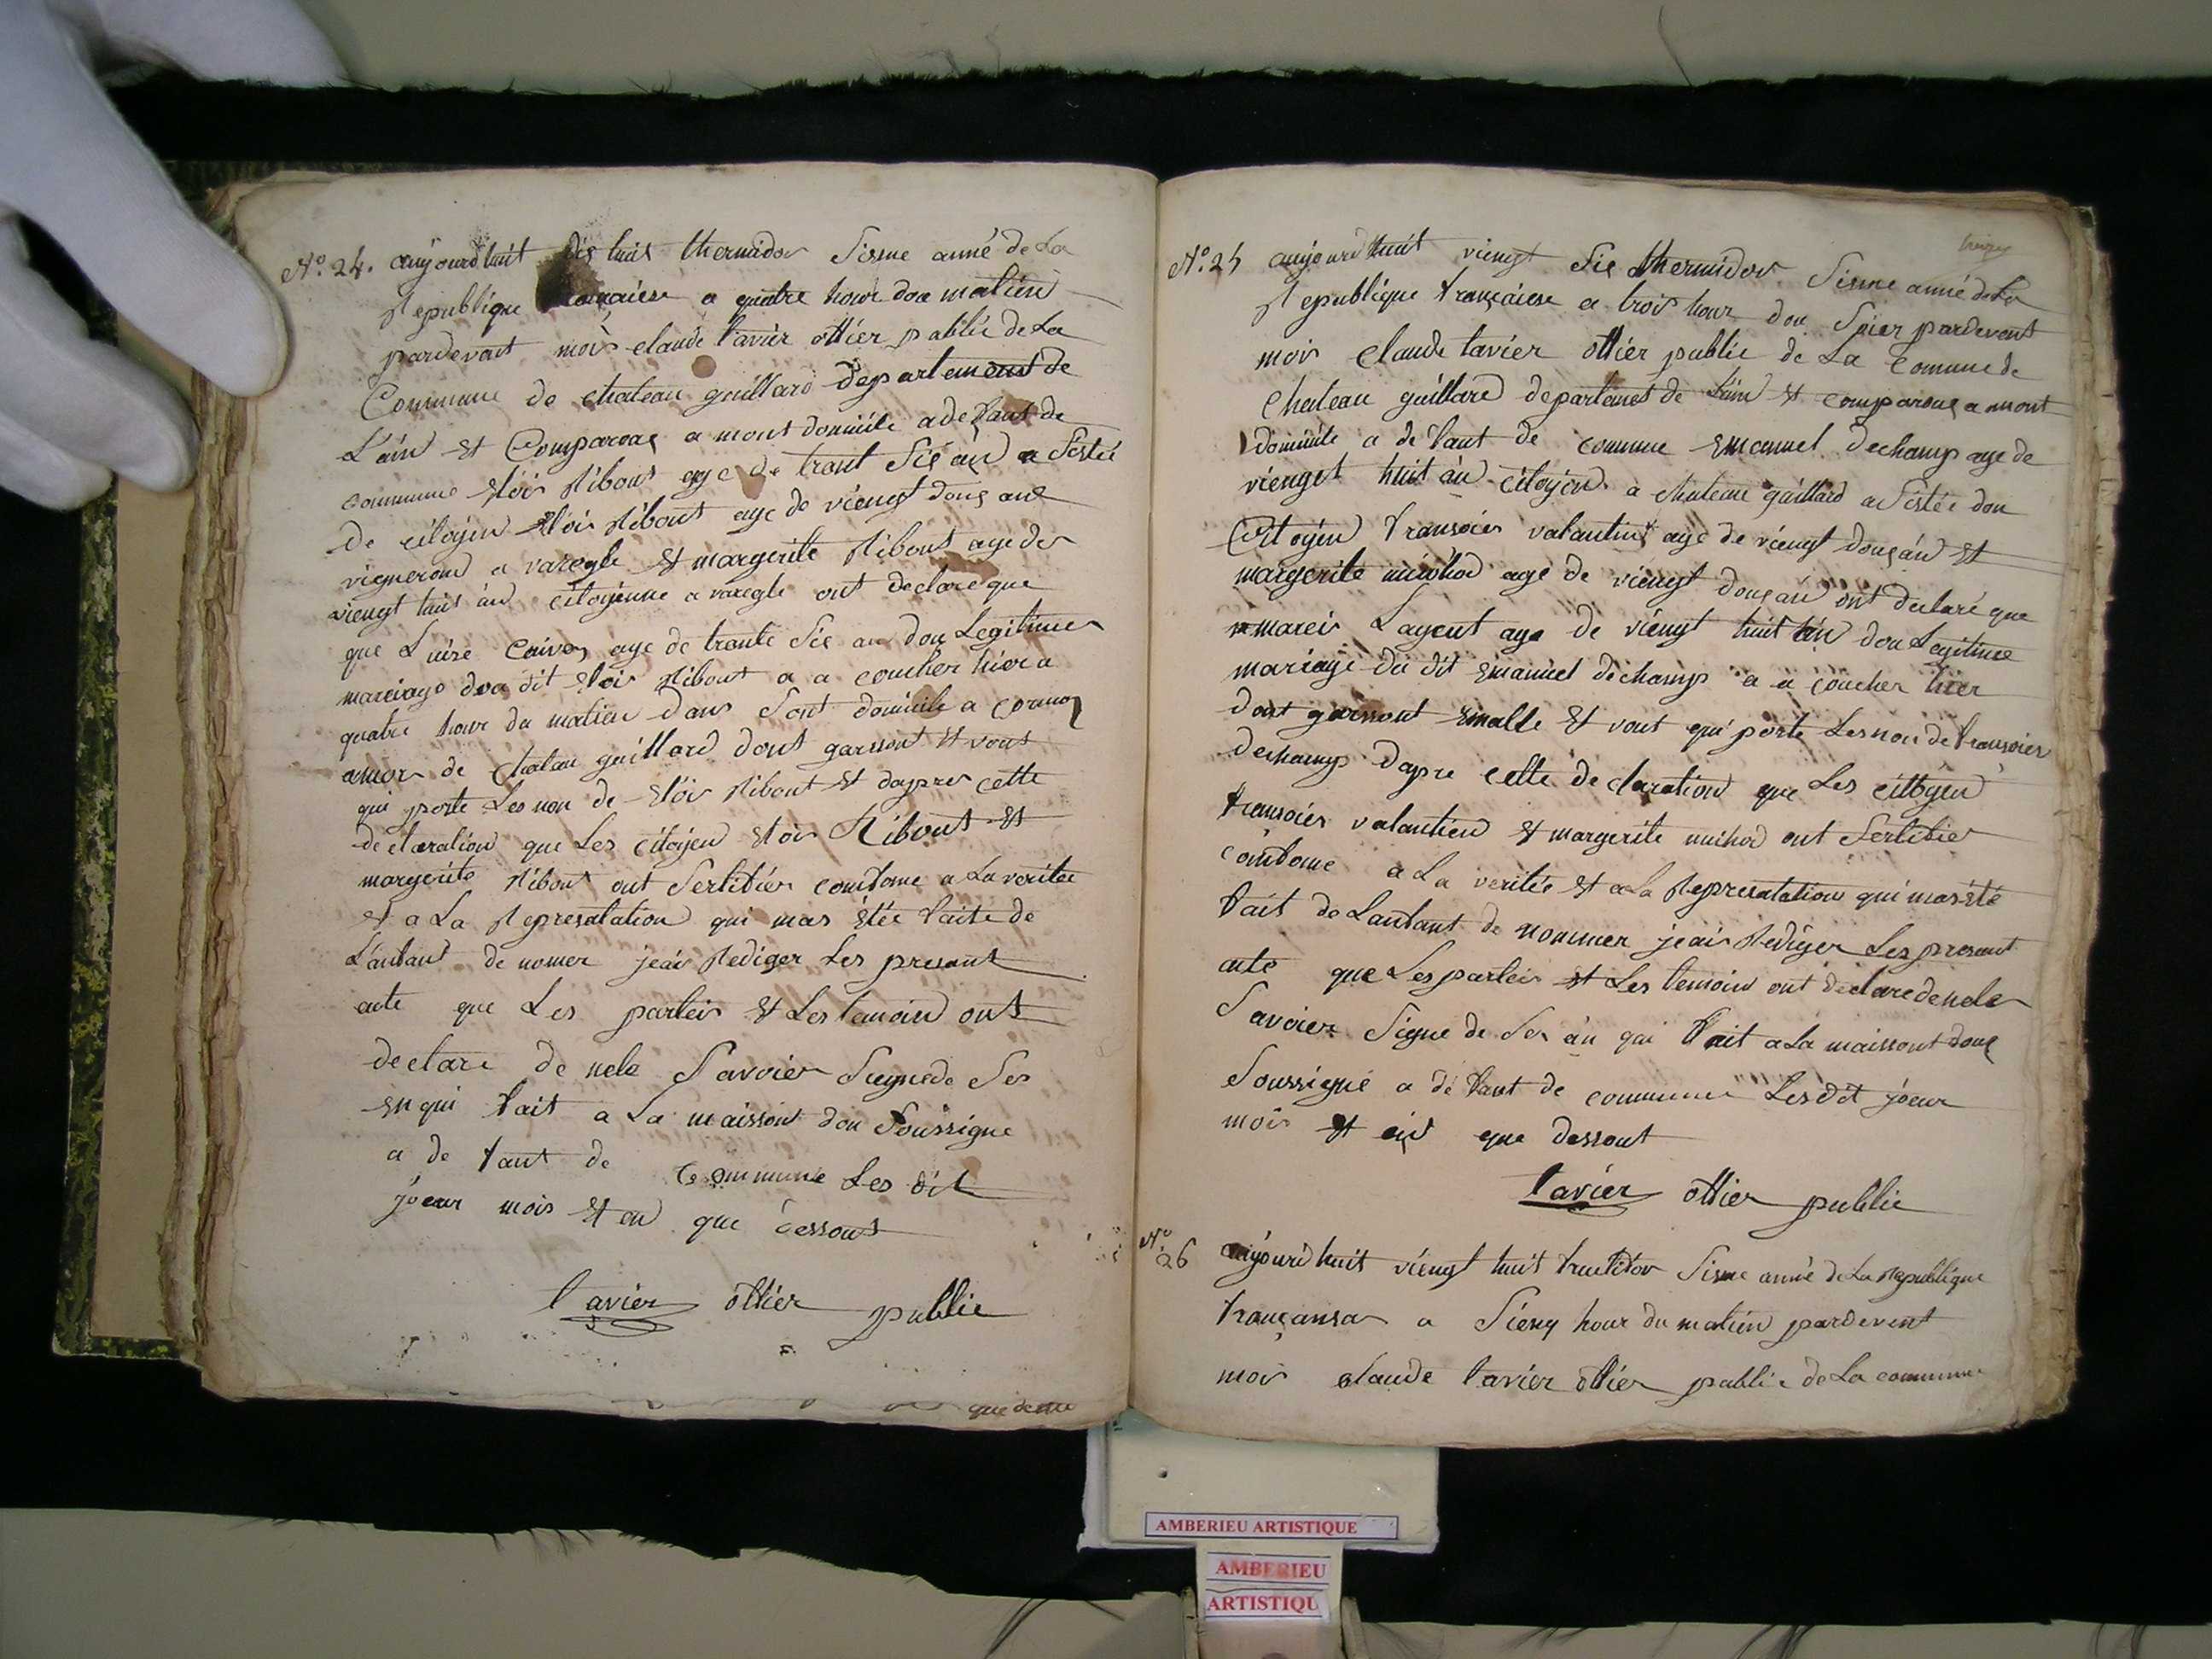 N.º 24. aujourd huit dis huit thermidor Sisme anné de La
Republique francaiese a quatre hour dou matien
pardevant mois claude favier offier public de La
Commune de chateau gaillard departement de
L'ain et Comparoas a mont domicile a defaut de
commune Elois Ribout age de trant Sis an a Sistée
De citoyen Elois Ribout age de viengt douz ans
vigneron a varegle et margerite Ribout age de
viengt huis an citoyenne a varegle ont declare que
que Luise age de trante Sis an dou Legitime
marciage dou dit Elois Ribout a a coucher hier a
quatre hour du matien dans Sont domicile a cormoz
amor de chatau gaillard dont garssont et vont
qui porte Les non de Elois Ribout et dapres cette
declaration que Les citoyen Elois Ribout et
margerite Ribout ont Sertifier comforme a La veritée
et a La Represatation qui mas étée faite de
Lanfant de nomer jeais Rediger Les presant
acte que Les parteis et Les temoin ont
declare de nele Savoier Signe de Ses
En qui fait a La maissont dou Soussigne
a de faut de Commune Les dit
joeur mois et an que dessous
favier offier public
que de me
N.º 25 aujourd huit viengt Sis thermidor Sisme anné de La
Republique françaiese a trois hour dou Soier pardevent
mois Claude favier offier public de La Comune de
Chateau gaillard departemet de Lain et comparous a mont
domicile a de faut de commune Emanuel dechamp age de
viengt huit an citoyen a chateau gaillard a Sistée dou
Citoyen fransoies valantin age de viengt douz an et
margerite michod age de viengt douz an ont declaré que
mareis Lagent age de viengt huit an dou Legitime
mariage du dit Emanuel dechamp a a coucher hier
dont garssont Emalle et vont qui porte Les non de fransoies
dechamp dapre cette declaration que Les citoyen
fransoies valantien et margerite michod ont Sertifier
comforme a La veritée et a La Represatation qui mas été
fait de Lanfant de nommer jeais Rediger Les presant
acte que Les parteis et Les temoin ont declare de nele
Savoier Signe de Ses an qui fait a La maissont douz
Soussigné a de faut de commune Les dit joeur
mois et an que dessout
favier offier public
Nº 26 aujourd huit viengt huit fructidor Sisme anné de La Republique
françansa a Sienq hour du matien pardevent
mois claude favier offier public de La commune
AMBERIEU ARTISTIQUE
AMBERIEU
ARTISTIQU